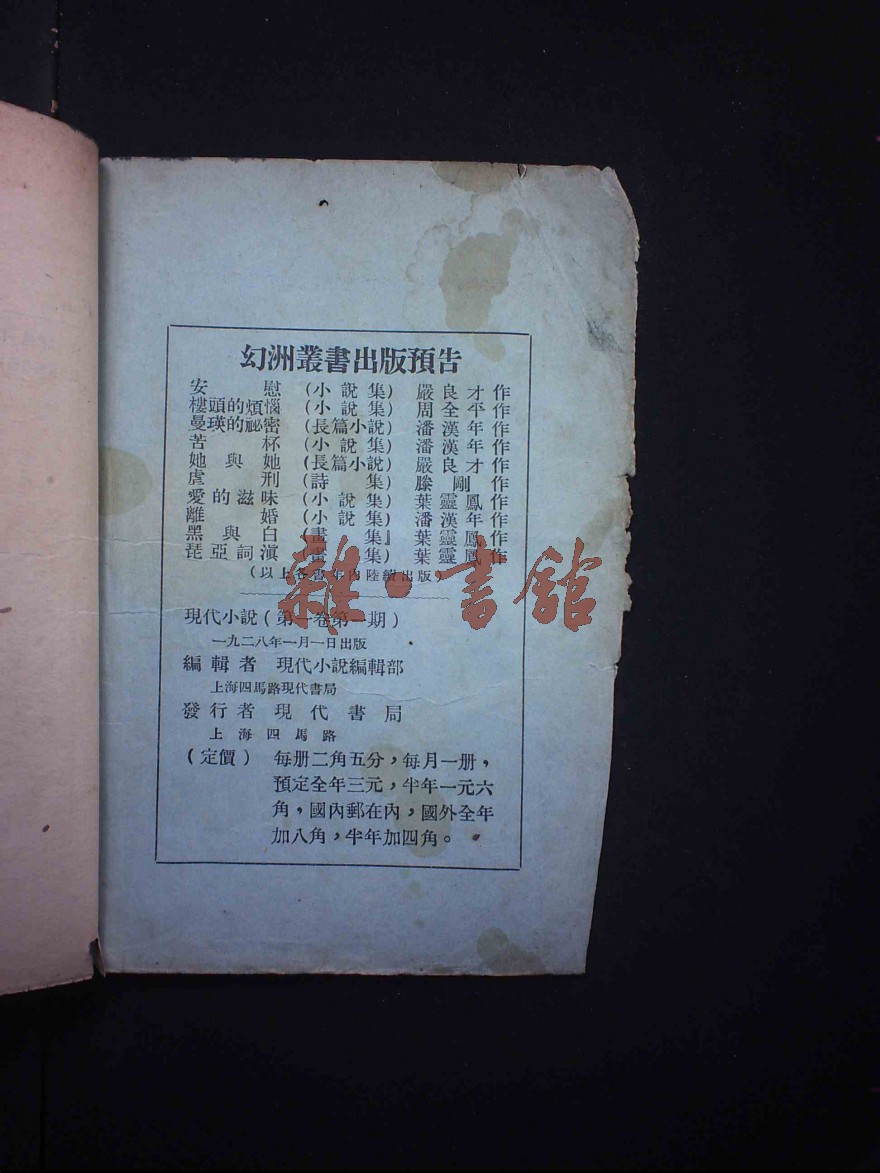 幻洲叢書出版預告
安慰（小說集）嚴良才作
樓頭的煩惱（小說集）周全平作
曼瑛的祕密（長篇小說）潘漢年作
苦杯（小說集）潘漢年作
她與她（長篇小說）嚴良才作
虐刑（詩集）滕剛作
愛的滋味（小說集）葉靈鳳作
離婚（小說集）潘漢年作
黑與白（畫集』葉靈鳳作
琵亞詞滇（畫集）葉靈鳳作
（以上各書年內陸續出版）
雜·書館
現代小說（第一卷第一期）
一九二八年一月一日出版
編輯者 現代小說編輯部
上海四馬路現代書局
發行者 現代書局
上海四馬路
（定價） 每册二角五分，每月一册，
預定全年三元，半年一元六
角，國內郵在內，國外全年
加八角，半年加四角。